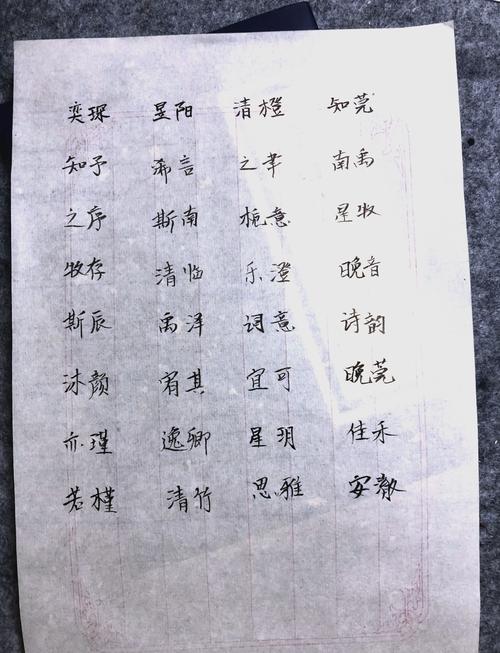 奕琛 昱阳 清橙 知莞
知予 希言 之聿 南禹
之序 斯南 栀意 星牧
牧存 清临 乐澄 晚音
斯辰 禹泽 词意 诗韵
沐颜 宥其 宜可 晚莞
亦瑾 逸卿 星玥 佳禾
若槿 清竹 思雅 安澉